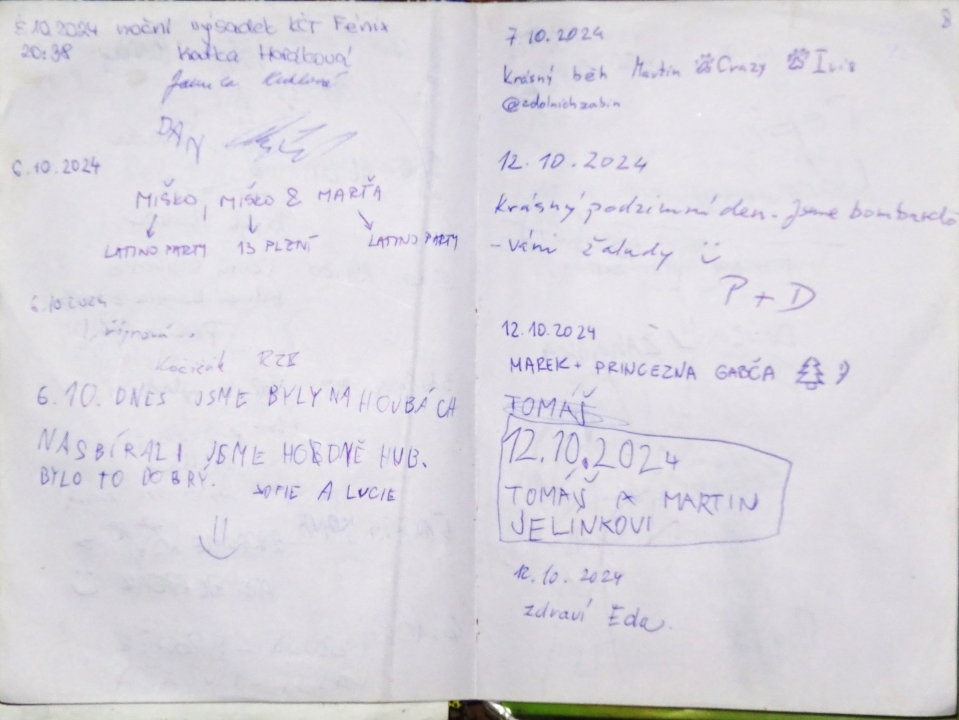 5.10.2024 noční výsadek KČT Fénix
20:38 Katka Horáková
DAN
6.10.2024
MIŠKO, MIŠKO & MARŤA
LATINO PARTY 13 PLZNÍ LATINO PARTY
6.10.2024
RZB
6.10. DNES JSME BYLY NA HOUBÁCH
NASBÍRALI JSME HODNĚ HUB.
BYLO TO DOBRÝ.
SOFIE A LUCIE
8
7 10.2024
Krásný běh Martin Crazy Iris
@zdolnichzabin
12.10.2024
Krásný podzimní den. Jsme bombardo
-váni žaludy
P + D
12.10.2024
MAREK + PRINCEZNA GABČA
TOMÁŠ
12.10.2024
TOMÁŠ A MARTIN
JELINKOVI
12.10.2024
zdraví Eda.